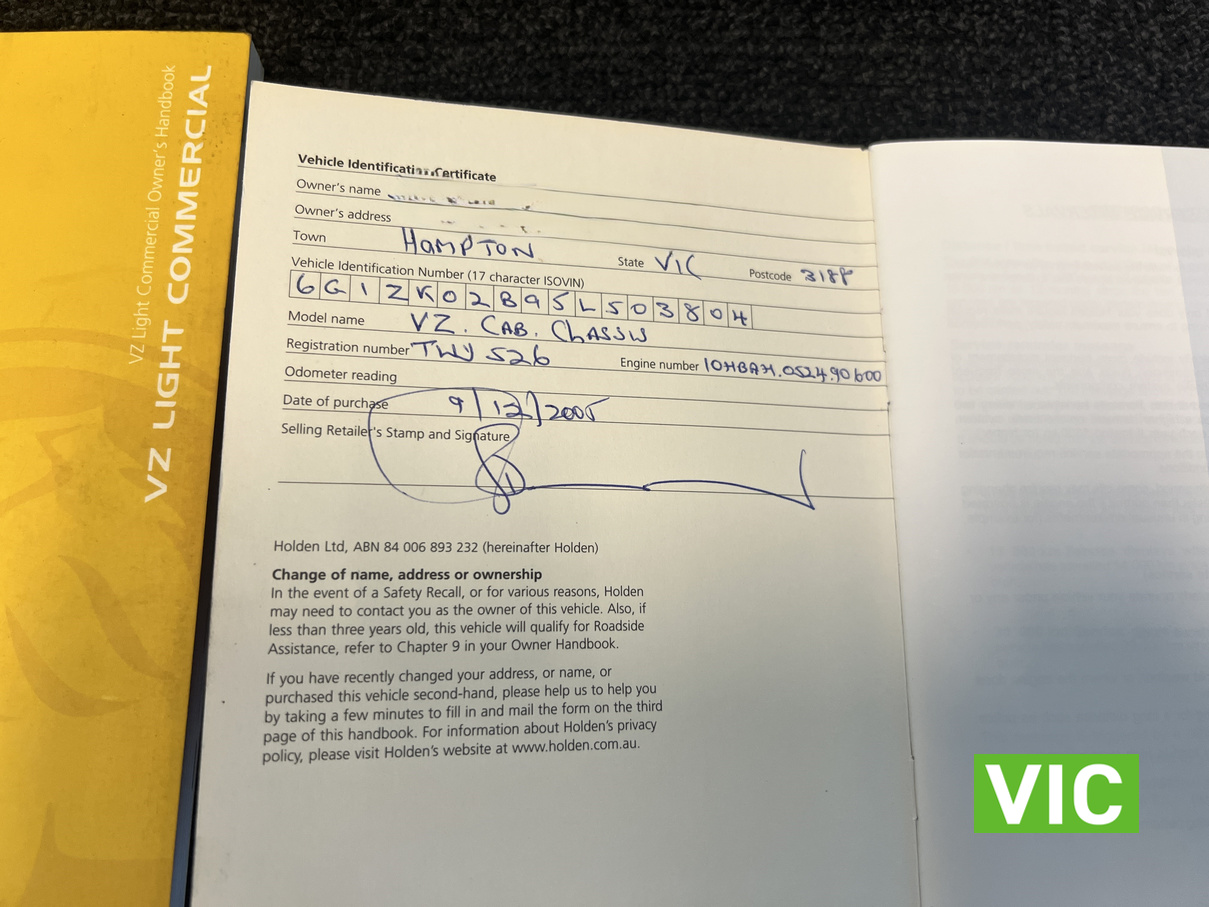 VZ Light Commercial Owner's Handbook
VZ LIGHT COMMERCIAL
Vehicle Identification Certificate
Owner's name
Owner's address
Town HAMPTON State VIC Postcode 3188
Vehicle Identification Number (17 character ISOVIN)
6G1ZK02B95L503804
Model name VZ. CAB. CHASSIS
Registration number TWJ 526 Engine number 10HBAH.0524.90600
Odometer reading
Date of purchase 9/12/2005
Selling Retailer's Stamp and Signature
Holden Ltd, ABN 84 006 893 232 (hereinafter Holden)
Change of name, address or ownership
In the event of a Safety Recall, or for various reasons, Holden
may need to contact you as the owner of this vehicle. Also, if
less than three years old, this vehicle will qualify for Roadside
Assistance, refer to Chapter 9 in your Owner Handbook.
If you have recently changed your address, or name, or
purchased this vehicle second-hand, please help us to help you
by taking a few minutes to fill in and mail the form on the third
page of this handbook. For information about Holden's privacy
policy, please visit Holden's website at www.holden.com.au.
VIC